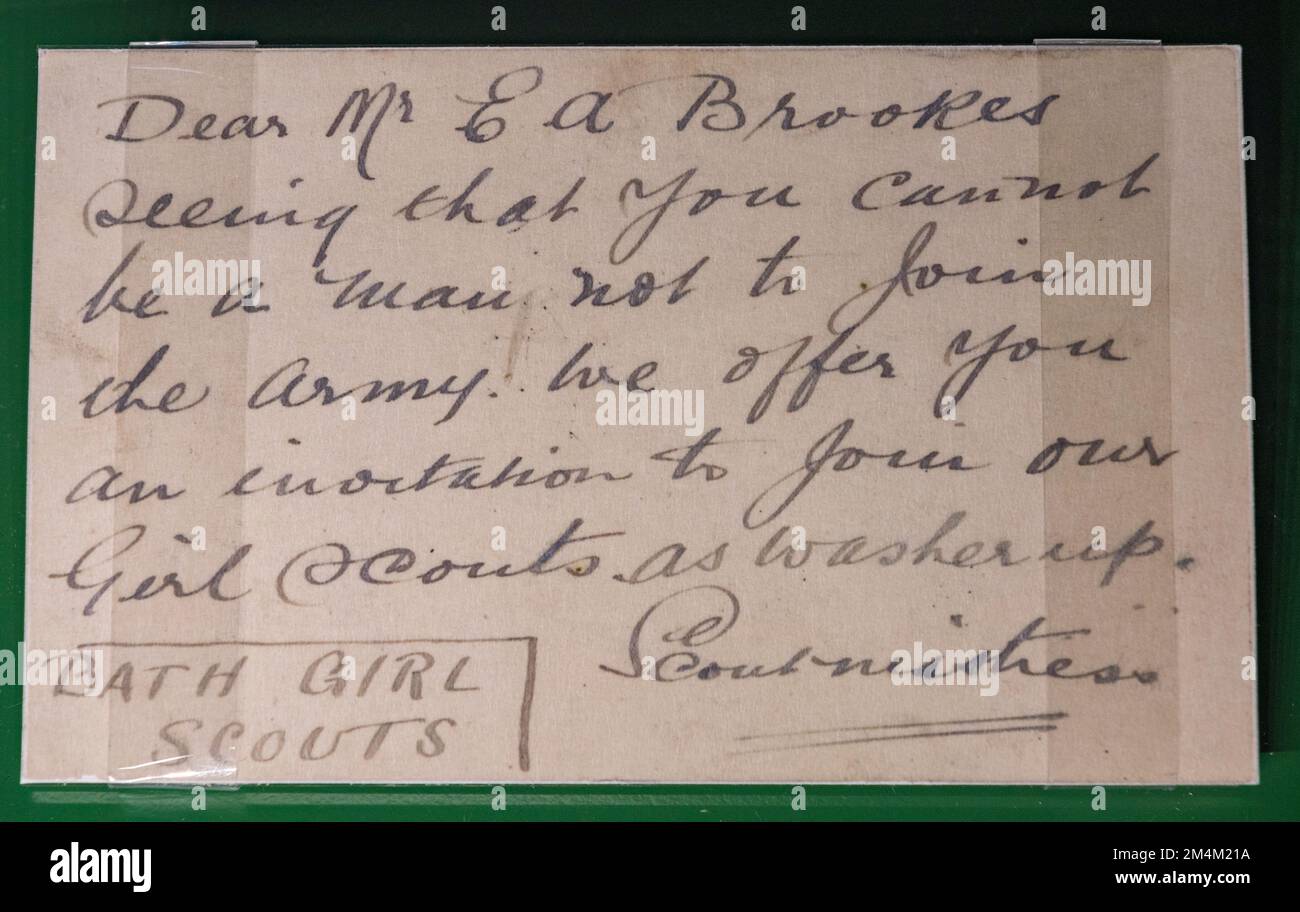 Dear Mr E A Brookes
Seeing that you cannot
be a man not to Join
the Army. We offer you
an invitation to Join our
Girl Scouts as washer up.
Scoutmistress
BATH GIRL
SCOUTS
alamy
alamy
Image ID: 2M4M21A
www.alamy.com